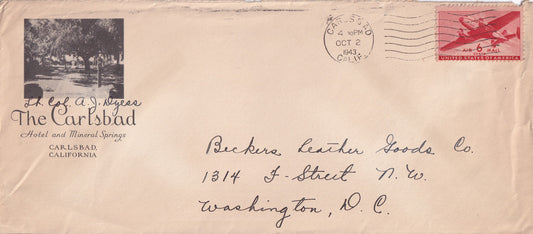 Lt. Col. A. J. Dyess
The Carlsbad
Hotel and Mineral Springs
CARLSBAD,
CALIFORNIA
CARLSBAD
4 PM
OCT 2
1943
CALIF.
AIR 6¢ MAIL
UNITED STATES OF AMERICA
Beckers Leather Goods Co.
1314 F-Street N.W.
Washington, D.C.